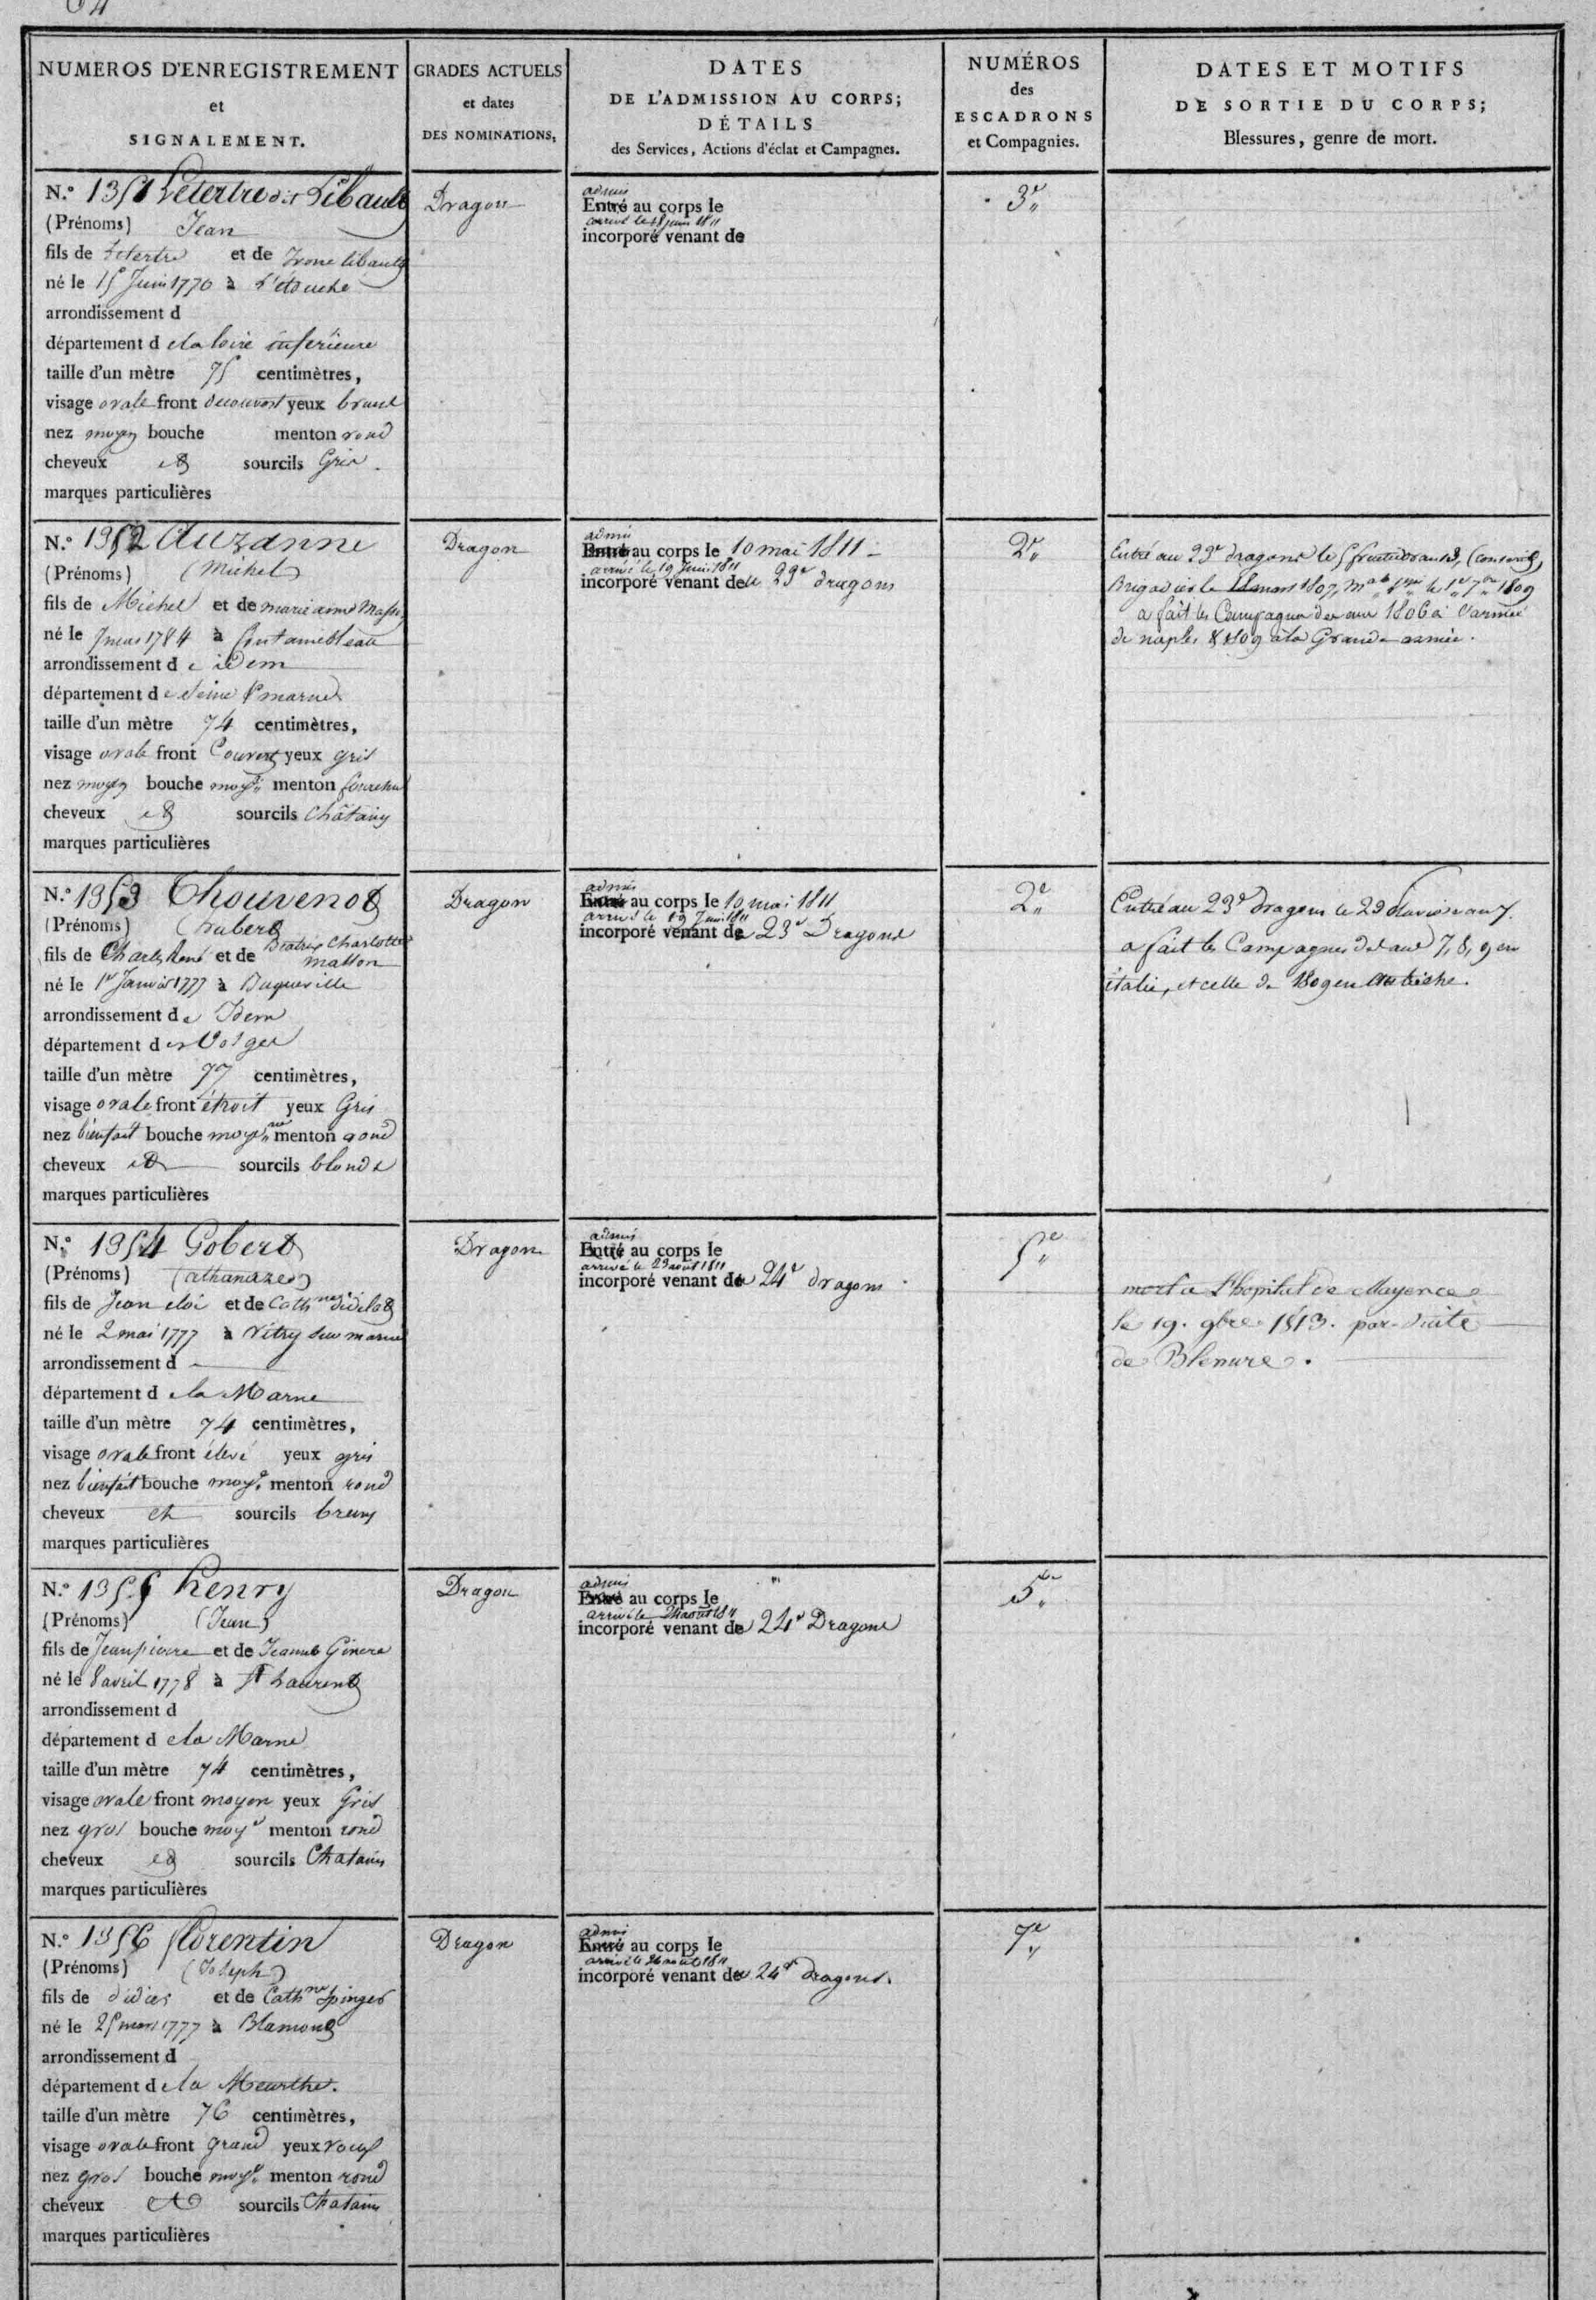 NUMEROS D'ENREGISTREMENT
et
SIGNALEMENT.
GRADES ACTUELS
et dates
DES NOMINATIONS,
DATES
DE L'ADMISSION AU CORPS;
DÉTAILS
des Services, Actions d'éclat et Campagnes.
NUMÉROS
des
ESCADRONS
et Compagnies.
DATES ET MOTIFS
DE SORTIE DU CORPS;
Blessures, genre de mort.
N.° 1351 Letertre dit Libault
(Prénoms) Jean
fils de Letertre et de Ivone libault
né le 15 Juin 1770 à
arrondissement d
département de la loire inferieure
taille d'un mètre 75 centimètres,
visage ovale front decouvert yeux bruns
nez moyen bouche menton rond
cheveux et sourcils Gris.
marques particulières
Dragon
admis
Entré au corps le
arrivé le 18 juin 1811
incorporé venant de
3e
N.° 1352 Auzanne
(Prénoms) (Michel)
fils de Michel et de marie anne
né le 7 mars 1784 à fontainebleau
arrondissement de idem
département de Seine et marne
taille d'un mètre 74 centimètres,
visage ovale front Couvert yeux gris
nez moyen bouche moye menton fourchu
cheveux et sourcils Châtains
marques particulières
Dragon
admis
Entré au corps le 10 mai 1811
arrivé le 19 Juin 1811
incorporé venant de 23e dragons
2e
Entré au 23e dragons le 5 fructidor an 13, (conscrit)
Brigadier le mars 1807, mal le 1er 7bre 1809
a fait les Campagnes des ans 1806 à l'armée
de naples & 1809 à la Grande armée.
N.° 1353 Thouvenot
(Prénoms) (hubert
fils de Charles René et de Beatrix Charlotte
Matton
né le 1er Janvier 1777 à
arrondissement de Idem
département des Vosges
taille d'un mètre 77 centimètres,
visage ovale front étroit yeux Gris
nez bienfait bouche moyenne menton rond
cheveux et sourcils blonds
marques particulières
Dragon
admis
Entré au corps le 10 mai 1811
arrivé le 19 Juin 1811
incorporé venant de 23e Dragons
2e
Entré au 23e dragons le 29 pluviose an 7.
a fait les Campagnes des ans 7, 8, 9 en
italie, et celle de 1809 en Autriche.
N.° 1354 Gobert
(Prénoms) (athanaze)
fils de Jean eloi et de Cathne didelot
né le 2 mai 1777 à Vitry sur marne
arrondissement d
département de la Marne
taille d'un mètre 74 centimètres,
visage ovale front élevé yeux gris
nez bienfait bouche moye menton rond
cheveux et sourcils bruns
marques particulières
Dragon
admis
Entré au corps le
arrivé le 29 août 1811
incorporé venant de 24e dragons
5e
mort a L'hopital de Mayence
le 19. 9bre 1813. par Suite
de Blessure.
N.° 1355 henry
(Prénoms) (Jean)
fils de Jean pierre et de Jeanne
né le 8 avril 1778 à St Laurent
arrondissement d
département de la Marne
taille d'un mètre 74 centimètres,
visage ovale front moyen yeux Gris
nez gros bouche moye menton rond
cheveux et sourcils Chatains
marques particulières
Dragon
admis
Entré au corps le
arrivé le août 1811
incorporé venant de 24e Dragons
5e
N.° 1356 florentin
(Prénoms) (Joseph)
fils de didier et de Cathne
né le 25 mars 1777 à Blamont
arrondissement d
département de la Meurthe.
taille d'un mètre 76 centimètres,
visage ovale front grand yeux roux
nez gros bouche moye menton rond
cheveux et sourcils Chatains
marques particulières
Dragon
admis
Entré au corps le
arrivé le 26 août 1811
incorporé venant de 24e dragons.
7e